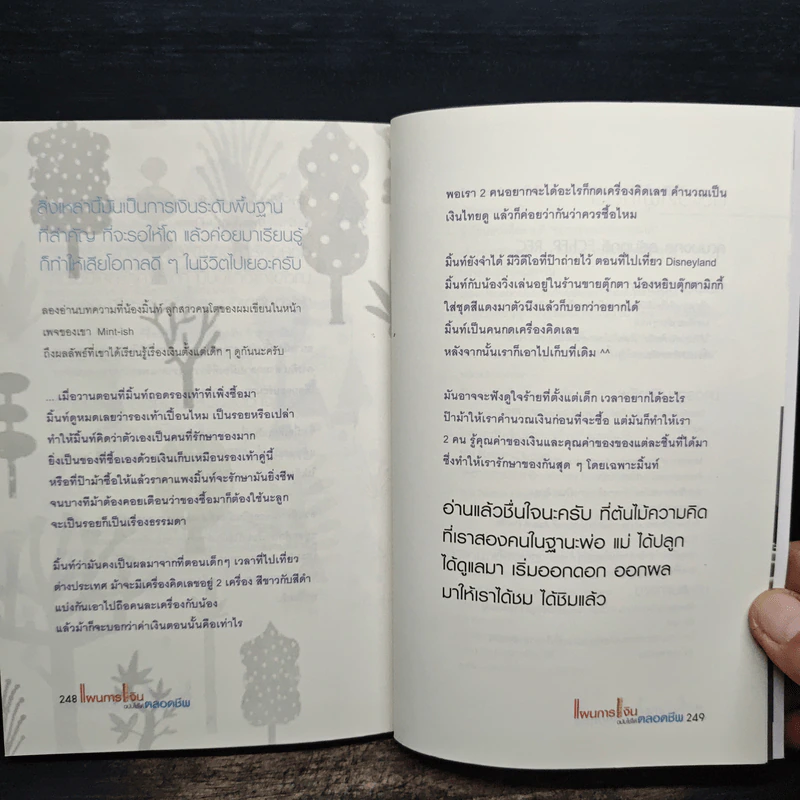 สิ่งเหล่านี้มันเป็นการเงินระดับพื้นฐาน
ที่สำคัญ ที่จะรอให้โต แล้วค่อยมาเรียนรู้
ก็ทำให้เสียโอกาสดี ๆ ในชีวิตไปเยอะครับ
ลองอ่านบทความที่น้องมิ้นท์ ลูกสาวคนโตของผมเขียนในหน้า
เพจของเขา Mint-ish
ถึงผลลัพธ์ที่เขาได้เรียนรู้เรื่องเงินตั้งแต่เด็ก ๆ ดูกันนะครับ
... เมื่อวานตอนที่มิ้นท์ถอดรองเท้าที่เพิ่งซื้อมา
มิ้นท์ดูหมดเลยว่ารองเท้าเปื้อนไหม เป็นรอยหรือเปล่า
ทำให้มิ้นท์คิดว่าตัวเองเป็นคนที่รักษาของมาก
ยิ่งเป็นของที่ซื้อเองด้วยเงินเก็บเหมือนรองเท้าคู่นี้
หรือที่ป๊าม้าซื้อให้แล้วราคาแพงมิ้นท์จะรักษามันยิ่งชีพ
จนบางทีม้าต้องคอยเตือนว่าของซื้อมาก็ต้องใช้นะลูก
จะเป็นรอยก็เป็นเรื่องธรรมดา
มิ้นท์ว่ามันคงเป็นผลมาจากที่ตอนเด็กๆ เวลาที่ไปเที่ยว
ต่างประเทศ ม้าจะมีเครื่องคิดเลขอยู่ 2 เครื่อง สีขาวกับสีดำ
แบ่งกันเอาไปถือคนละเครื่องกับน้อง
แล้วม้าก็จะบอกว่าค่าเงินตอนนั้นคือเท่าไร
248 แผนการเงิน
ฉบับใช้ได้ตลอดชีพ
พอเรา 2 คนอยากจะได้อะไรก็กดเครื่องคิดเลข คำนวณเป็น
เงินไทยดู แล้วก็ค่อยว่ากันว่าควรซื้อไหม
มิ้นท์ยังจำได้ มีวิดีโอที่ป๊าถ่ายไว้ ตอนที่ไปเที่ยว Disneyland
มิ้นท์กับน้องวิ่งเล่นอยู่ในร้านขายตุ๊กตา น้องหยิบตุ๊กตามิกกี้
ใส่ชุดสีแดงมาตัวนึงแล้วก็บอกว่าอยากได้
มิ้นท์เป็นคนกดเครื่องคิดเลข
หลังจากนั้นเราก็เอาไปเก็บที่เดิม ^^
มันอาจจะฟังดูใจร้ายที่ตั้งแต่เด็ก เวลาอยากได้อะไร
ป๊าม้าให้เราคำนวณเงินก่อนที่จะซื้อ แต่มันก็ทำให้เรา
2 คน รู้คุณค่าของเงินและคุณค่าของของแต่ละชิ้นที่ได้มา
ซึ่งทำให้เรารักษาของกันสุด ๆ โดยเฉพาะมิ้นท์
อ่านแล้วชื่นใจนะครับ ที่ต้นไม้ความคิด
ที่เราสองคนในฐานะพ่อ แม่ ได้ปลูก
ได้ดูแลมา เริ่มออกดอก ออกผล
มาให้เราได้ชม ได้ชิมแล้ว
แผนการเงิน
ฉบับใช้ได้ตลอดชีพ 249